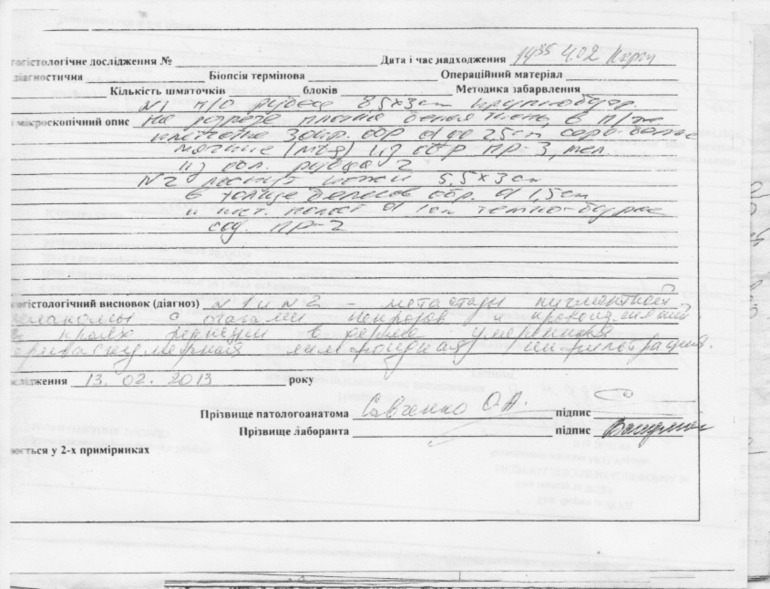 огістологічне дослідження № Дата і час надходження 14⁵⁵ 4.02
діагностична Біопсія термінова Операційний матеріал
Кількість шматочків блоків Методика забарвлення
N1 п/о рубец 8,5х3см
макроскопічний опис На разрезе плотна белая ткань, в п/ж
клетчатке 2,5см серо-
мягкие (Mtg) из обр ПР-3,
из обл. рубца 2
N2 лоскут кожи 5,5х3см
в толще белесов. обр. d 1,5см
и кист. полост d 1см темно-бурое
сод. ПР-2
огістологічний висновок (діагноз) N1 и N2 - метастазы пигментной
меланомы с очагами некрозов и кровоизлияний.
В краях резекции в дерме умеренная
периваскулярная лимфоидная инфильтрация.
слідження 13.02.2013 року
Прізвище патологоанатома Савченко О.А. підпис
Прізвище лаборанта підпис
юється у 2-х примірниках